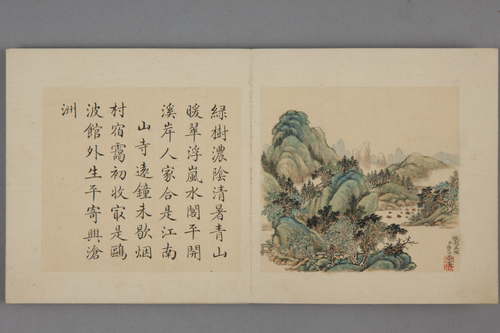 綠樹濃陰清暑青山
暖翠浮嵐水閣平開
溪岸人家合是江南
山寺遠鐘未歇烟
村宿靄初收㝡是鷗
波館外生平寄興滄
洲